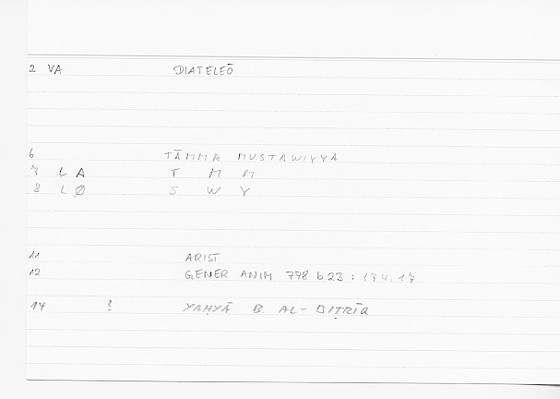 2 VA DIATELEŌ
6 TĀMMA MUSTAWIYYA
7 L A T M M
8 L Ø S W Y
11 ARIST
12 GENER ANIM 778 b 23 : 174.17
14 ? YAḤYĀ B. AL-BIṬRĪQ